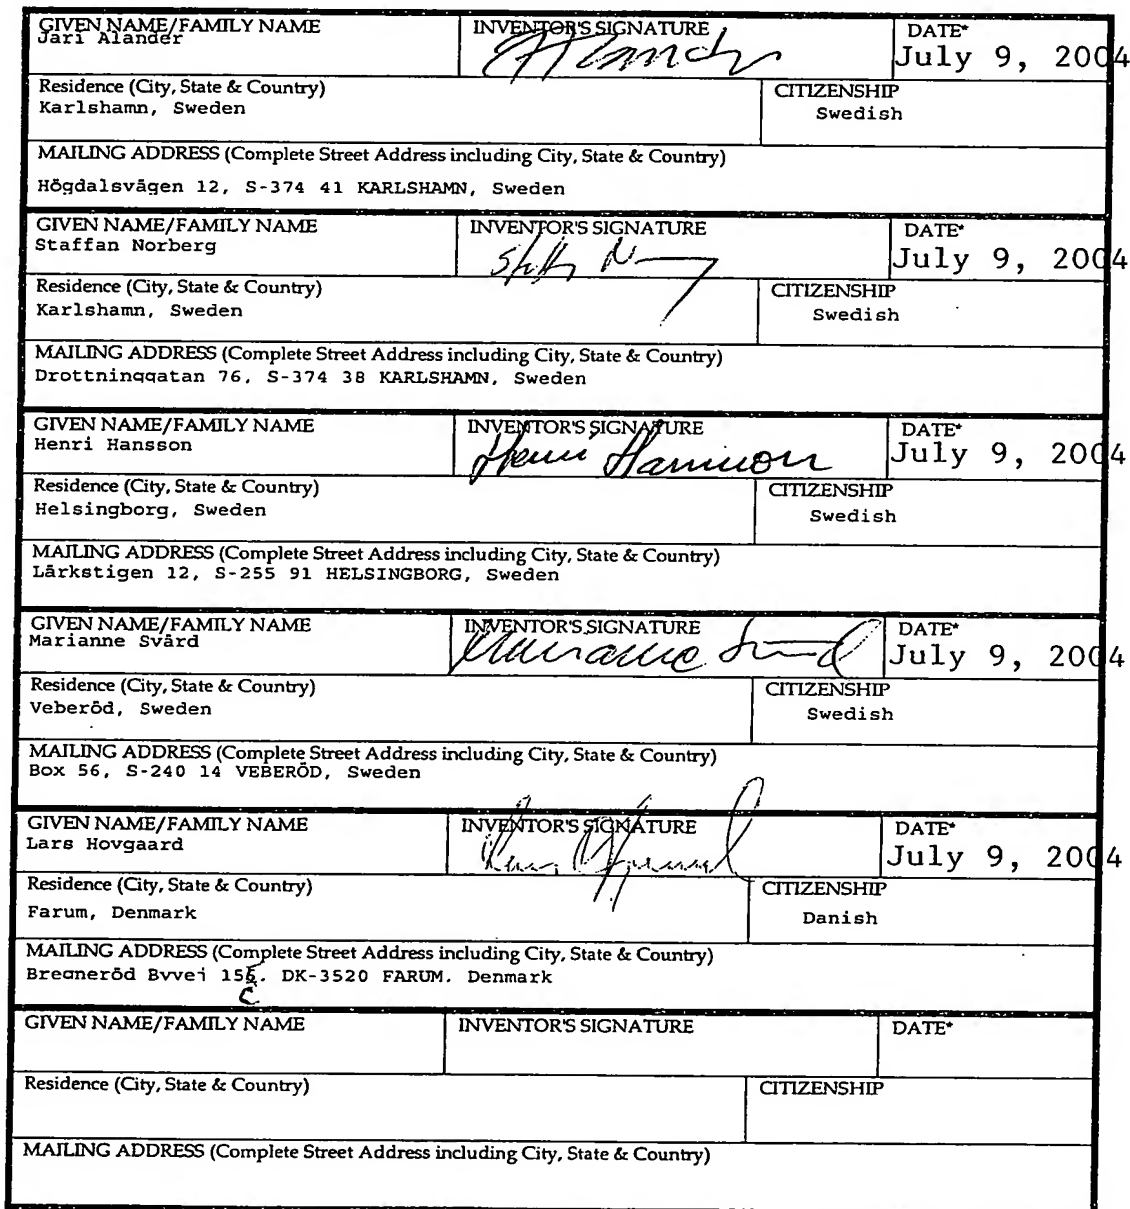 GIVEN NAME/FAMILY NAME INVENTOR'S SIGNATURE DATE*
Jari Alander July 9, 2004
Residence (City, State & Country) CITIZENSHIP
Karlshamn, Sweden Swedish
MAILING ADDRESS (Complete Street Address including City, State & Country)
Högdalsvägen 12, S-374 41 KARLSHAMN, Sweden
GIVEN NAME/FAMILY NAME INVENTOR'S SIGNATURE DATE*
Staffan Norberg July 9, 2004
Residence (City, State & Country) CITIZENSHIP
Karlshamn, Sweden Swedish
MAILING ADDRESS (Complete Street Address including City, State & Country)
Drottninggatan 76, S-374 38 KARLSHAMN, Sweden
GIVEN NAME/FAMILY NAME INVENTOR'S SIGNATURE DATE*
Henri Hansson Henri Hansson July 9, 2004
Residence (City, State & Country) CITIZENSHIP
Helsingborg, Sweden Swedish
MAILING ADDRESS (Complete Street Address including City, State & Country)
Lärkstigen 12, S-255 91 HELSINGBORG, Sweden
GIVEN NAME/FAMILY NAME INVENTOR'S SIGNATURE DATE*
Marianne Svärd Marianne Svärd July 9, 2004
Residence (City, State & Country) CITIZENSHIP
Veberöd, Sweden Swedish
MAILING ADDRESS (Complete Street Address including City, State & Country)
Box 56, S-240 14 VEBERÖD, Sweden
GIVEN NAME/FAMILY NAME INVENTOR'S SIGNATURE DATE*
Lars Hovgaard July 9, 2004
Residence (City, State & Country) CITIZENSHIP
Farum, Denmark Danish
MAILING ADDRESS (Complete Street Address including City, State & Country)
Bregneröd Byvej 15 DK-3520 FARUM. Denmark
C
GIVEN NAME/FAMILY NAME INVENTOR'S SIGNATURE DATE*
Residence (City, State & Country) CITIZENSHIP
MAILING ADDRESS (Complete Street Address including City, State & Country)